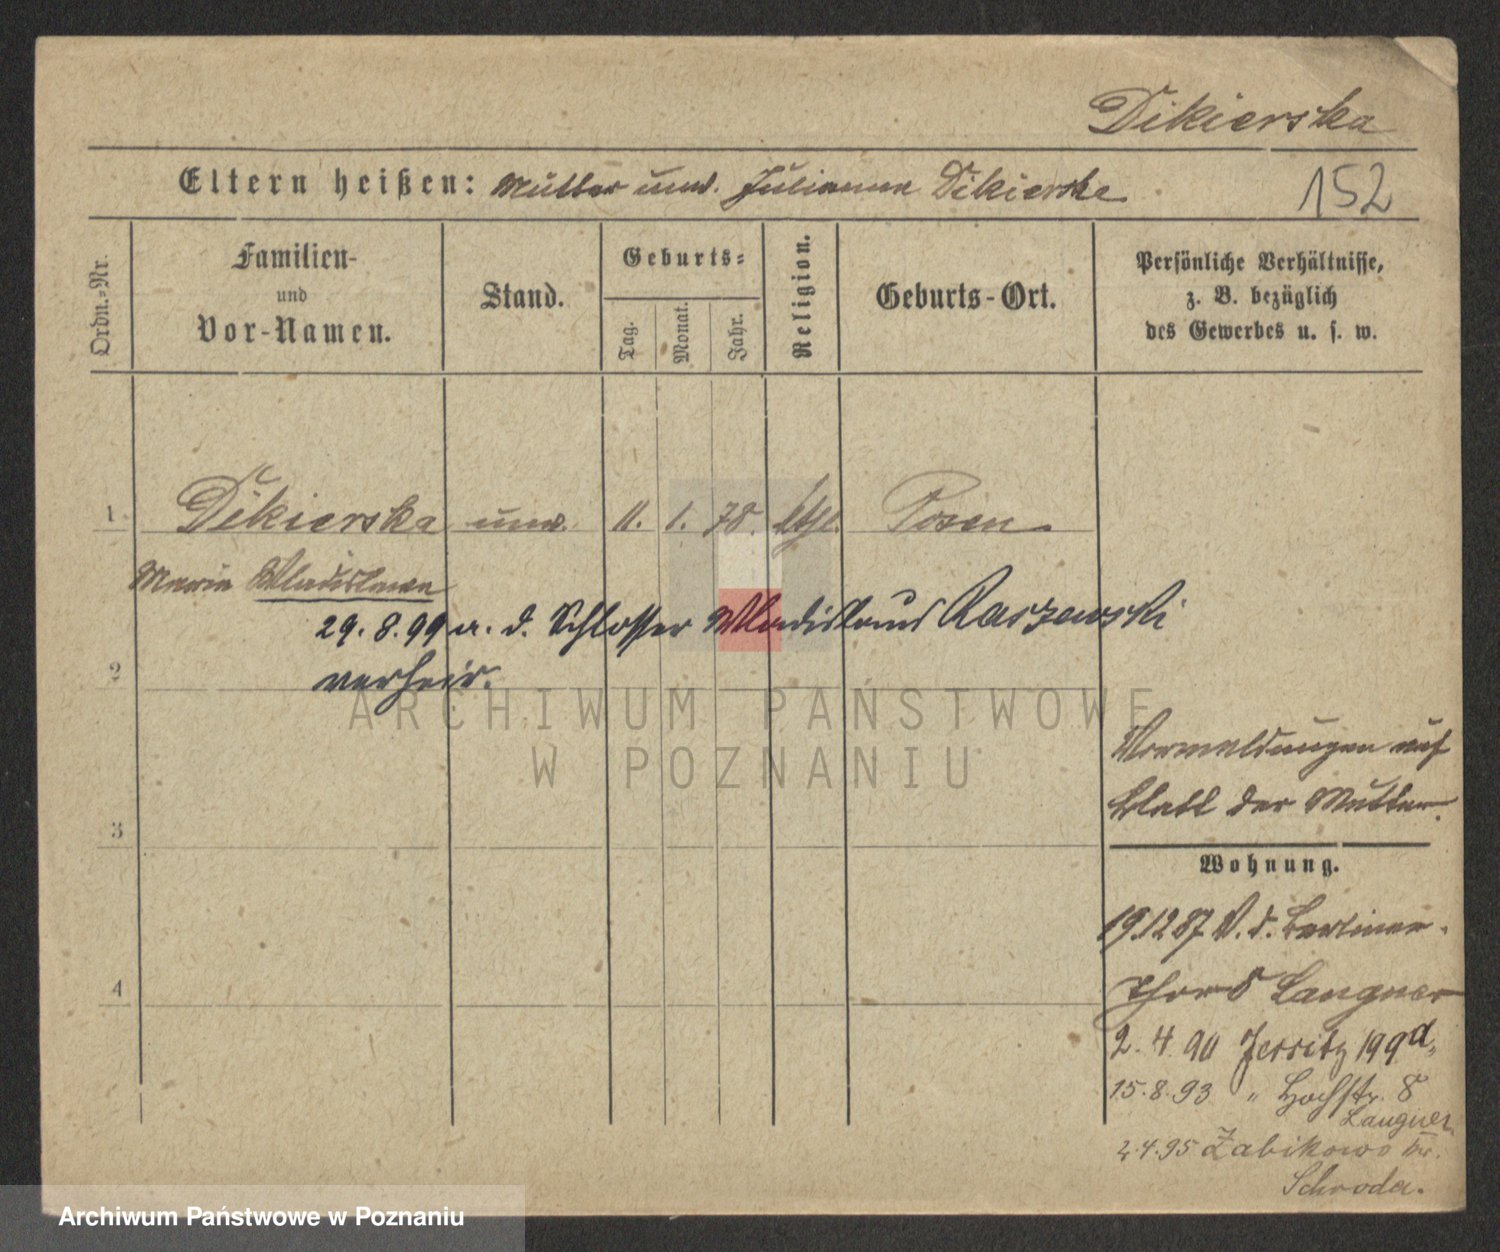 Dikierska
Eltern heißen: Mutter unv. Julianna Dikierska
152
Ordn.-Nr.
Familien-
und
Vor-Namen.
Stand.
Geburts-
Tag.
Monat.
Jahr.
Religion.
Geburts-Ort.
Persönliche Verhältnisse,
z. B. bezüglich
des Gewerbes u. s. w.
1 Dikierska unv. 11. 1. 78. ktl. Posen
Maria Wladislawa
29.8.99 a. d. Schlosser Wladislaus Raszewski
2 verheir.
ARCHIWUM PAŃSTWOWE
W POZNANIU
Vormeldungen auf
Blatt der Mutter.
3
Wohnung.
19.12 87 V. d. Berliner-
4 thor 8 Langner
2. 4. 90 Jersitz 199d.
15.8.93 " Hochstr. 8
Langner.
2.4.95 Zabikowo Kr.
Schroda.
Archiwum Państwowe w Poznaniu